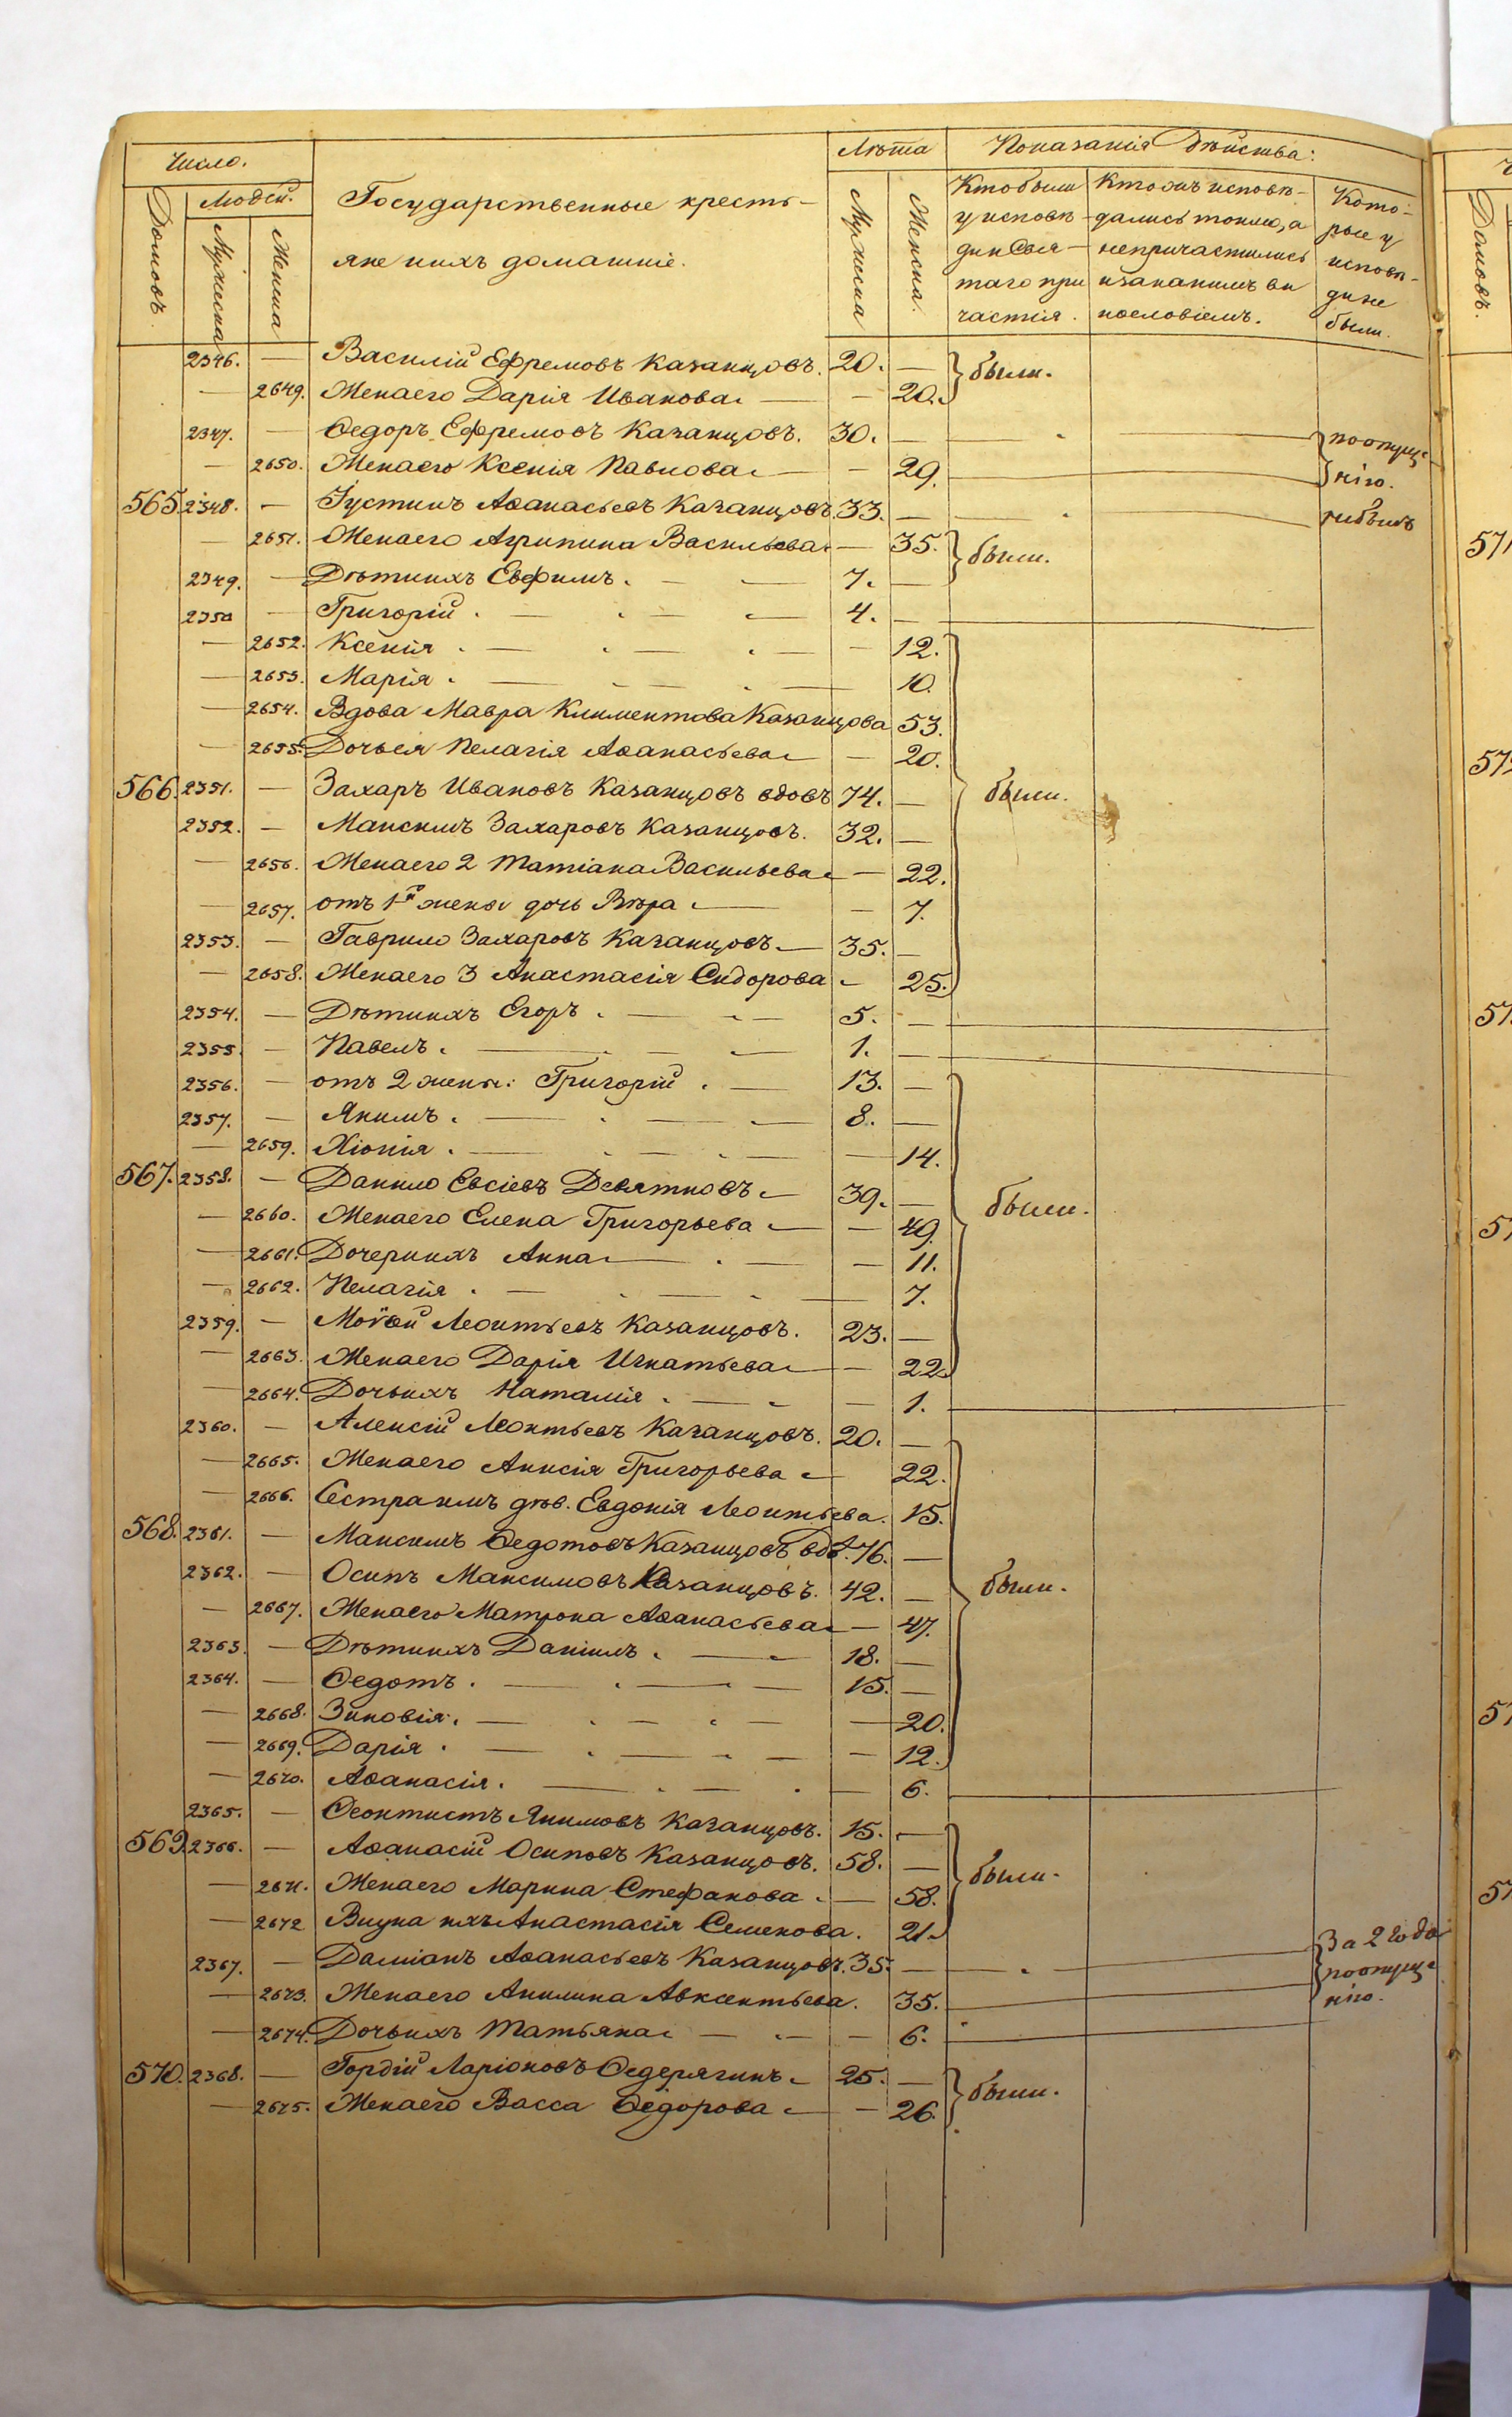 Число.
Лѣта
Показанія дѣйства:
Домовъ.
Людей.
Мужеска
Женска
Государственные кресть-
яне и ихъ домашніе.
Мужеска
Женска.
Кто были
у исповѣ-
ди и Свя-
таго при
частія.
Кто ихъ исповѣ-
дались токмо, а
непричастились
и за какимъ ви
нословіемъ.
Кото-
рые у
исповѣ-
ди не
были.
Домовъ.
2346. — Василій Ефремовъ Казанцовъ. 20. — были.
— 2649. Жена его Дарія Иванова — 20.
2347. — Ѳедоръ Ефремовъ Казанцовъ. 30. — по отлуч-
— 2650. Жена его Ксенія Павлова — 29. кѣ
565. 2348. — Іустинъ Аѳанасьевъ Казанцовъ. 33. — небылъ
— 2651. Жена его Агрипина Васильева — 35. были.
2349. — Дѣти ихъ Евфимъ. 7. —
2350 — Григорій. 4. —
— 2652. Ксенія. — 12.
— 2653. Марія. — 10.
— 2654. Вдова Мавра Климентова Казанцова 53.
— 2655. Дочь ея Пелагія Аѳанасьева — 20.
566. 2351. — Захаръ Ивановъ Казанцовъ вдовъ 74. — были.
2352. — Максимъ Захаровъ Казанцовъ. 32. —
— 2656. Жена его 2 Татіана Васильева — 22.
— 2657. отъ 1й жены дочь Вѣра — 7.
2353. — Гаврило Захаровъ Казанцовъ — 35. —
— 2658. Жена его 3 Анастасія Сидорова — 25.
2354. — Дѣти ихъ Егоръ. 5. —
2355. — Павелъ. 1. —
2356. — отъ 2 жены: Григорій. 13. —
2357. — Якимъ. 8. —
— 2659. Хіонія. — 14.
567. 2358. — Данило Евсіевъ Девятковъ — 39. — были.
— 2660. Жена его Елена Григорьева — 49.
— 2661. Дочери ихъ Анна — 11.
— 2662. Пелагія. — 7.
2359. — Моѵсей Леонтьевъ Казанцовъ. 23. —
— 2663. Жена его Дарія Игнатьева — 22
— 2664. Дочь ихъ Наталія. — 1.
2360. — Алексій Леонтьевъ Казанцовъ. 20. —
— 2665. Жена его Анисія Григорьева — 22.
— 2666. Сестра имъ дѣв. Евдокія Леонтьева. 15.
568. 2361. — Максимъ Ѳедотовъ Казанцовъ вдв. 76. —
2362. — Осипъ Максимовъ Казанцовъ. 42. — были.
— 2667. Жена его Матрона Аѳанасьева — 47.
2363. — Дѣти ихъ Даніилъ. 18. —
2364. — Ѳедотъ. 15. —
— 2668. Зиновія. — 20.
— 2669. Дарія. — 12.
— 2670. Аѳанасія. — 6.
2365. — Ѳеоктистъ Якимовъ Казанцовъ. 15. —
569. 2366. — Аѳанасій Осиповъ Казанцовъ. 58. — были.
— 2671. Жена его Марина Стефанова. — 58.
— 2672 Внука ихъ Анастасія Семенова. 21.
2367. — Даміанъ Аѳанасьевъ Казанцовъ. 35. — За 2 года
— 2673. Жена его Акилина Авксентьева. 35. по отлуч-
кѣ
— 2674. Дочь ихъ Татьяна — 6.
570. 2368. — Гордій Ларіоновъ 25. — были.
— 2675. Жена его Васса Ѳедорова — 26.